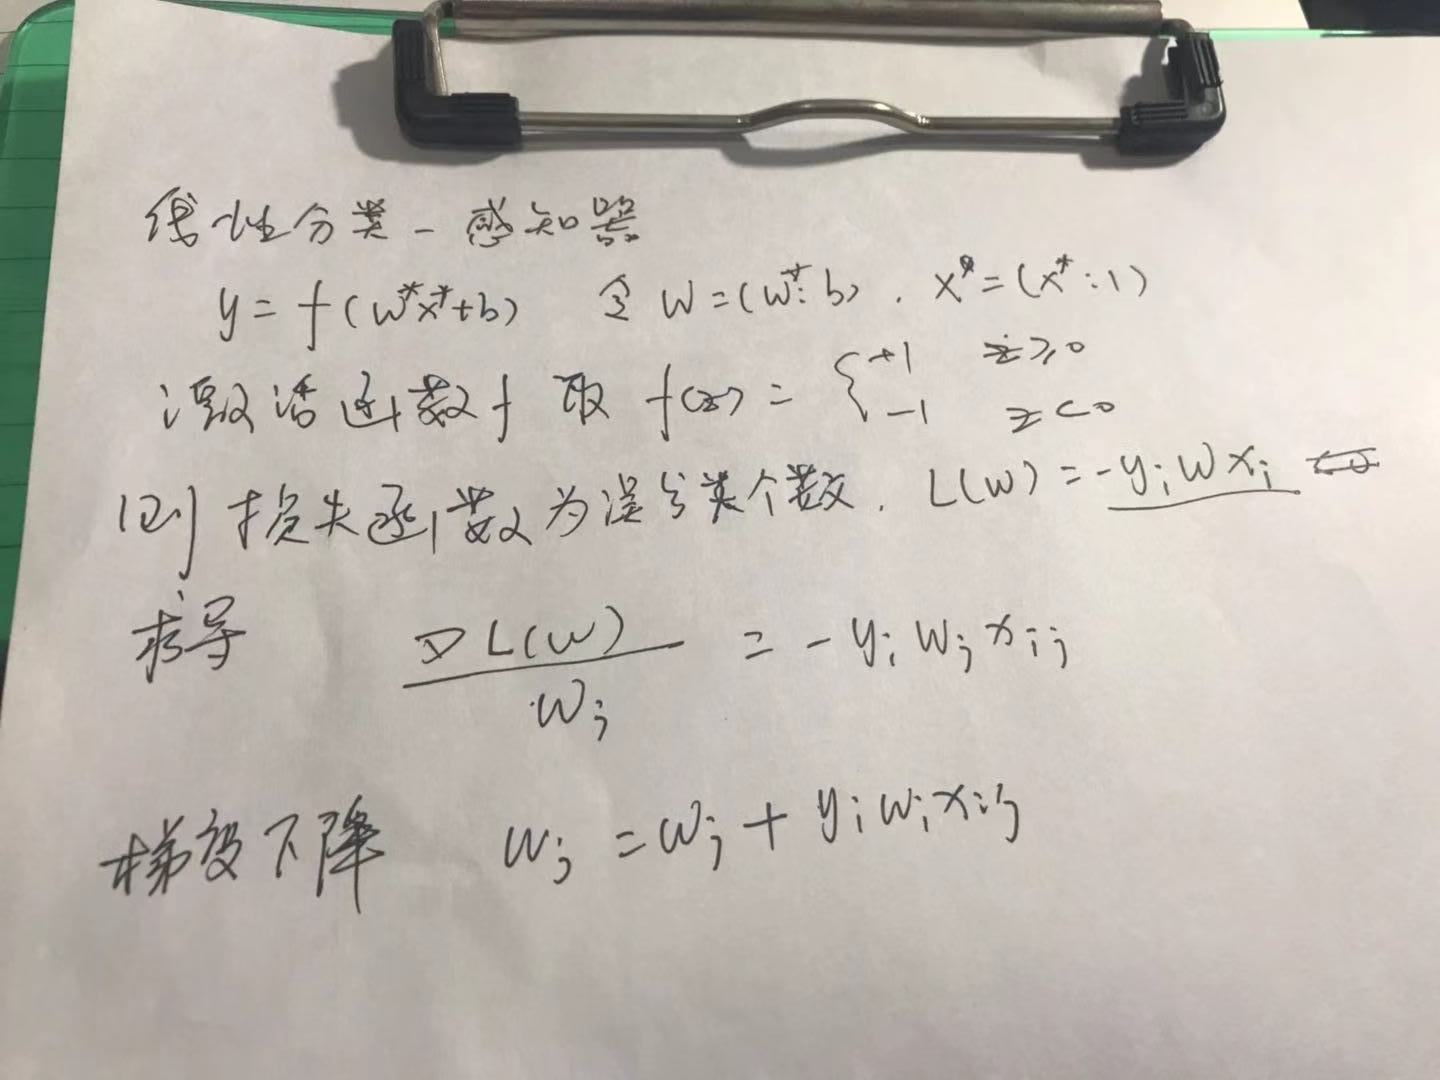 线性分类-感知器
y = f(w*x*+b) 令 W = (w*: b), x* = (x*: 1)
激活函数f 取 f(z) = { +1 z≥0
-1 z<0
则损失函数为误分类个数. L(w) = -yᵢ W xᵢ
求导 ∇L(w) / wⱼ = - yᵢ wⱼ xᵢⱼ
梯度下降 wⱼ = wⱼ + yᵢ wᵢ xᵢⱼ